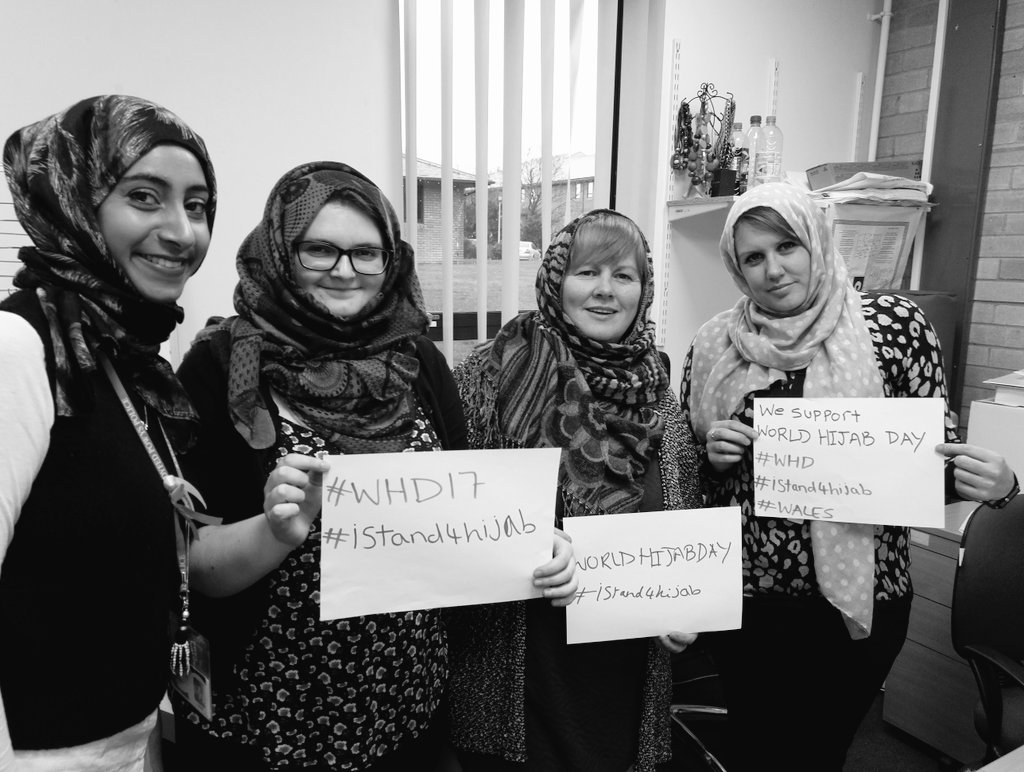 #WHD17
#iStand4hijab
WORLD HIJAB DAY
#iStand4hijab
We SUPPORT
WORLD HIJAB DAY
#WHD
#iStand4hijab
#WALES